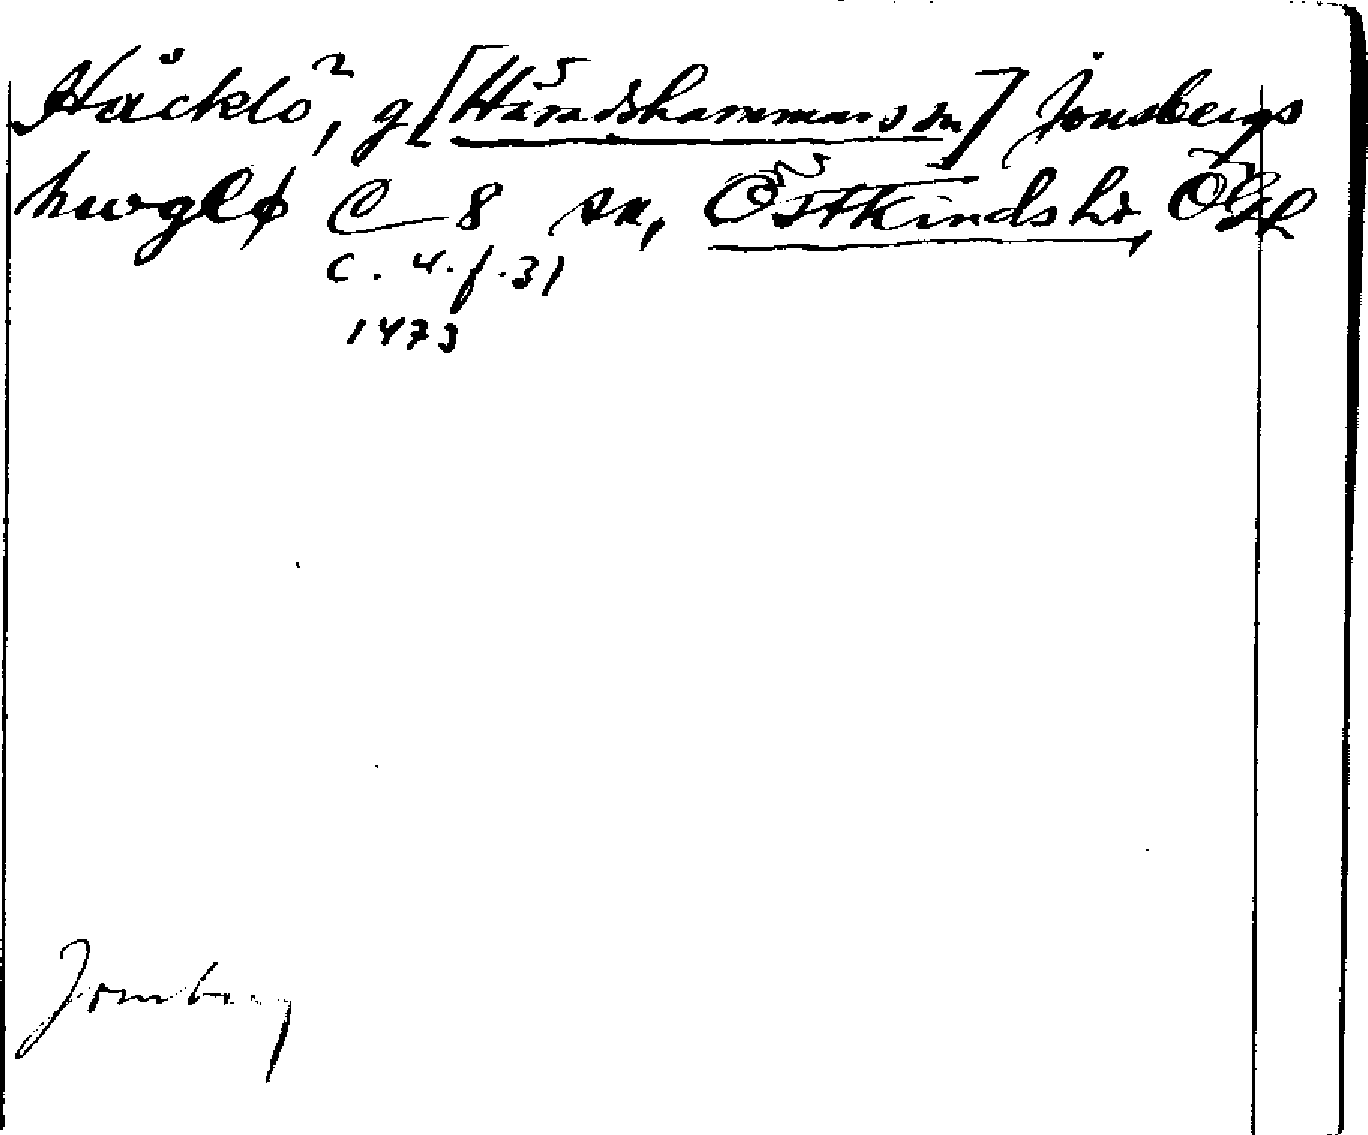 Häcklö, g [Häradshammars sn] Jonsbergs
hwglø C 8 sn, Östkinds hd, Ögl
C. 4. f. 31
1473
Jonsberg